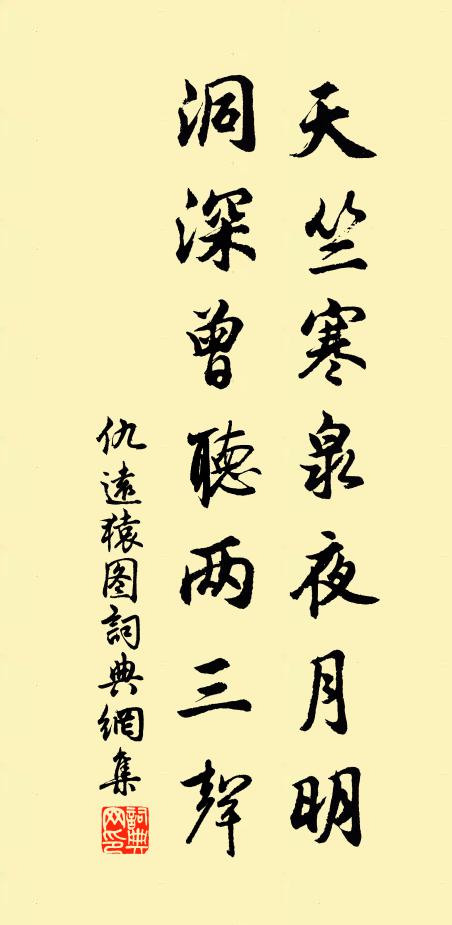 天竺寒泉夜月明
洞深曾聽两三聲
仇遠猿图詞典網集
詞典网印